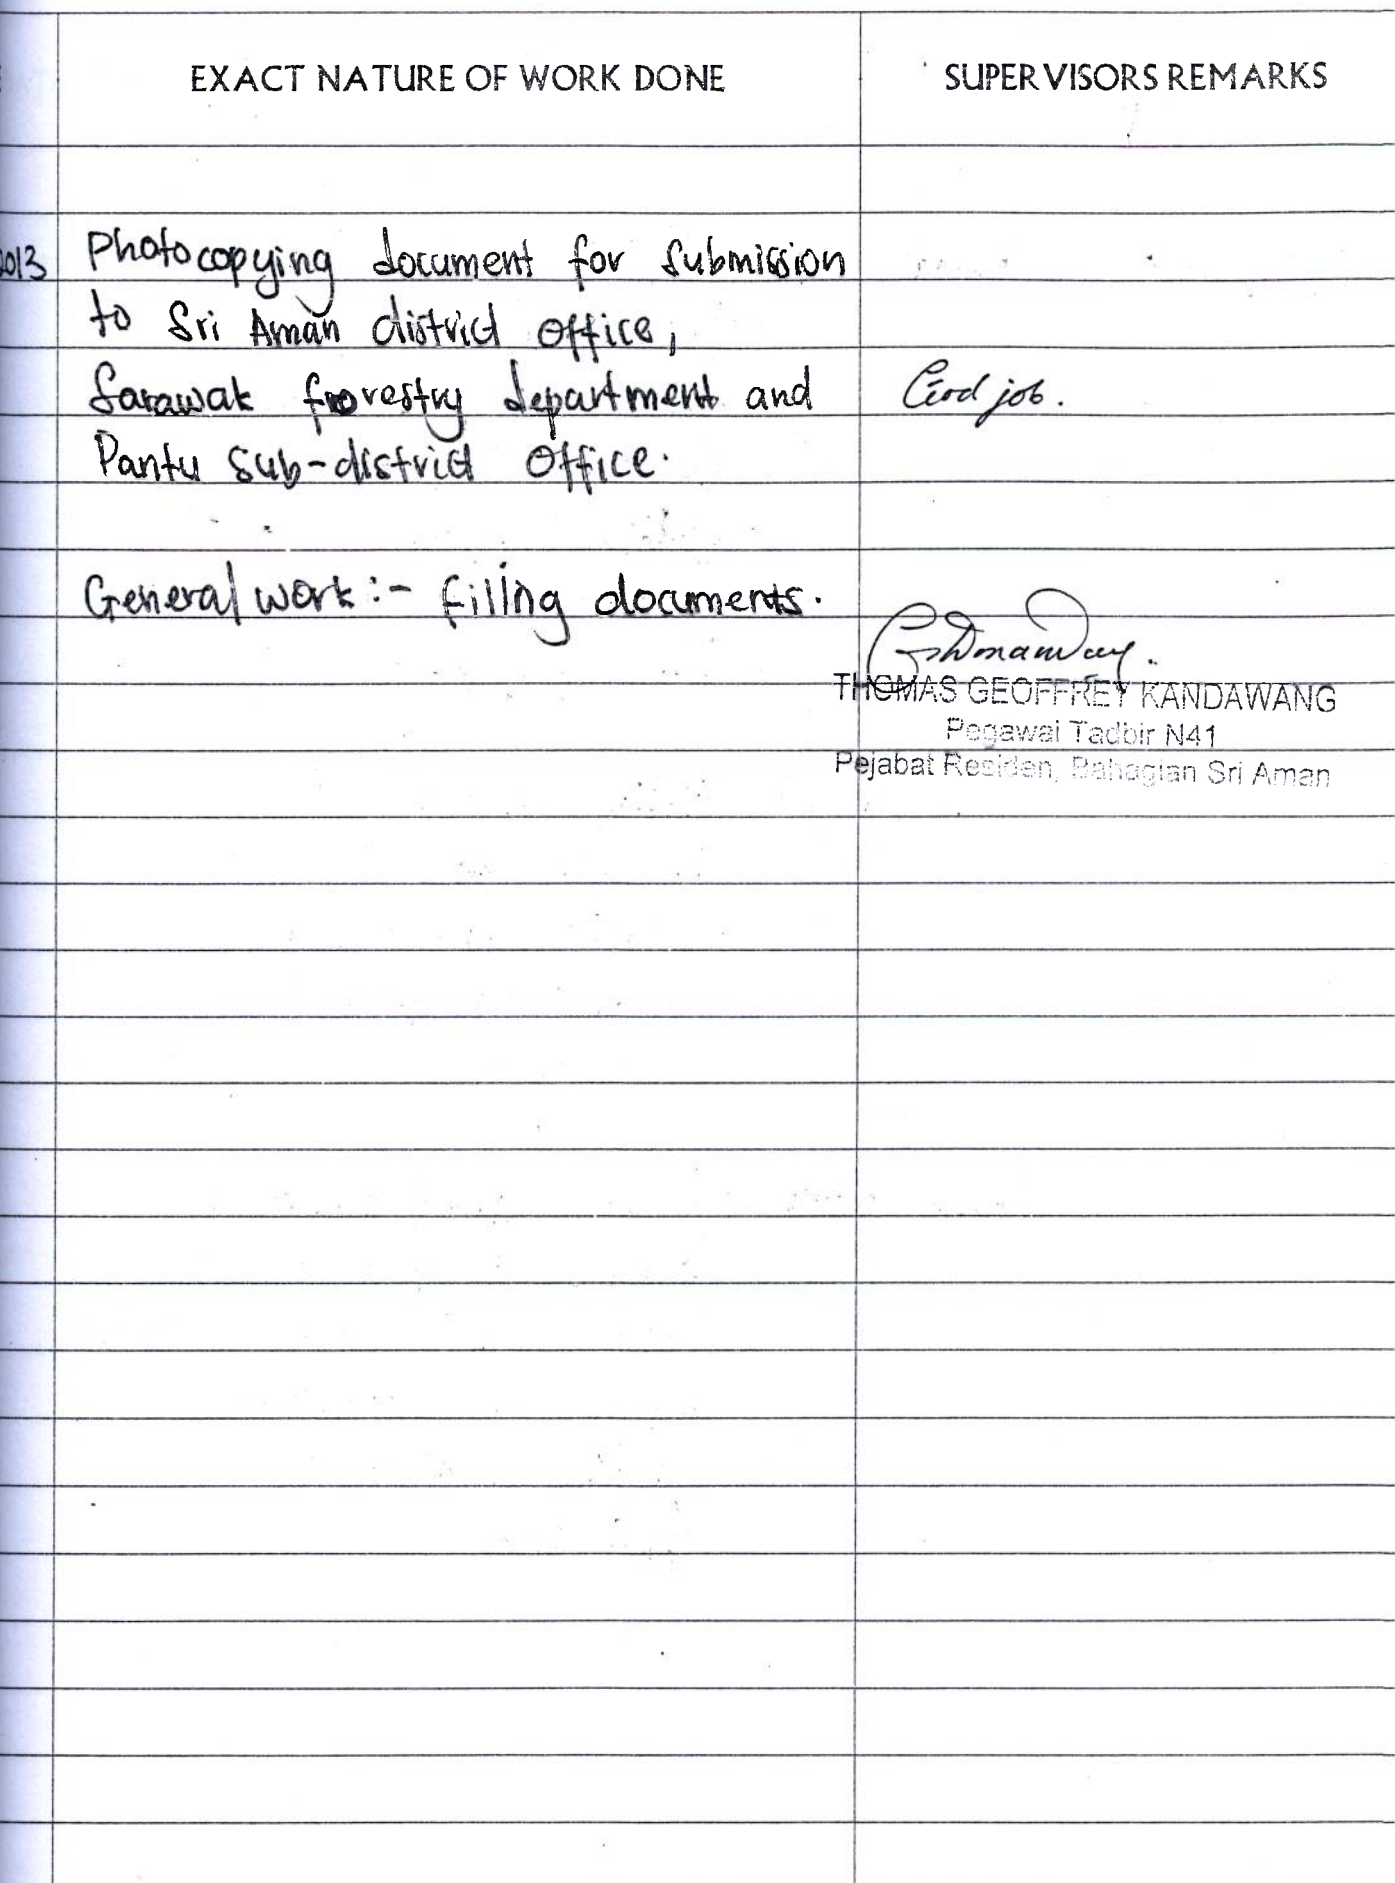 EXACT NATURE OF WORK DONE
SUPERVISORS REMARKS
2013 Photocopying document for submission
to Sri Aman district office,
Sarawak forestry department and
Good job.
Pantu sub-district office.
General work:- filling documents.
THOMAS GEOFFREY KANDAWANG
Pegawai Tadbir N41
Pejabat Residen, Bahagian Sri Aman